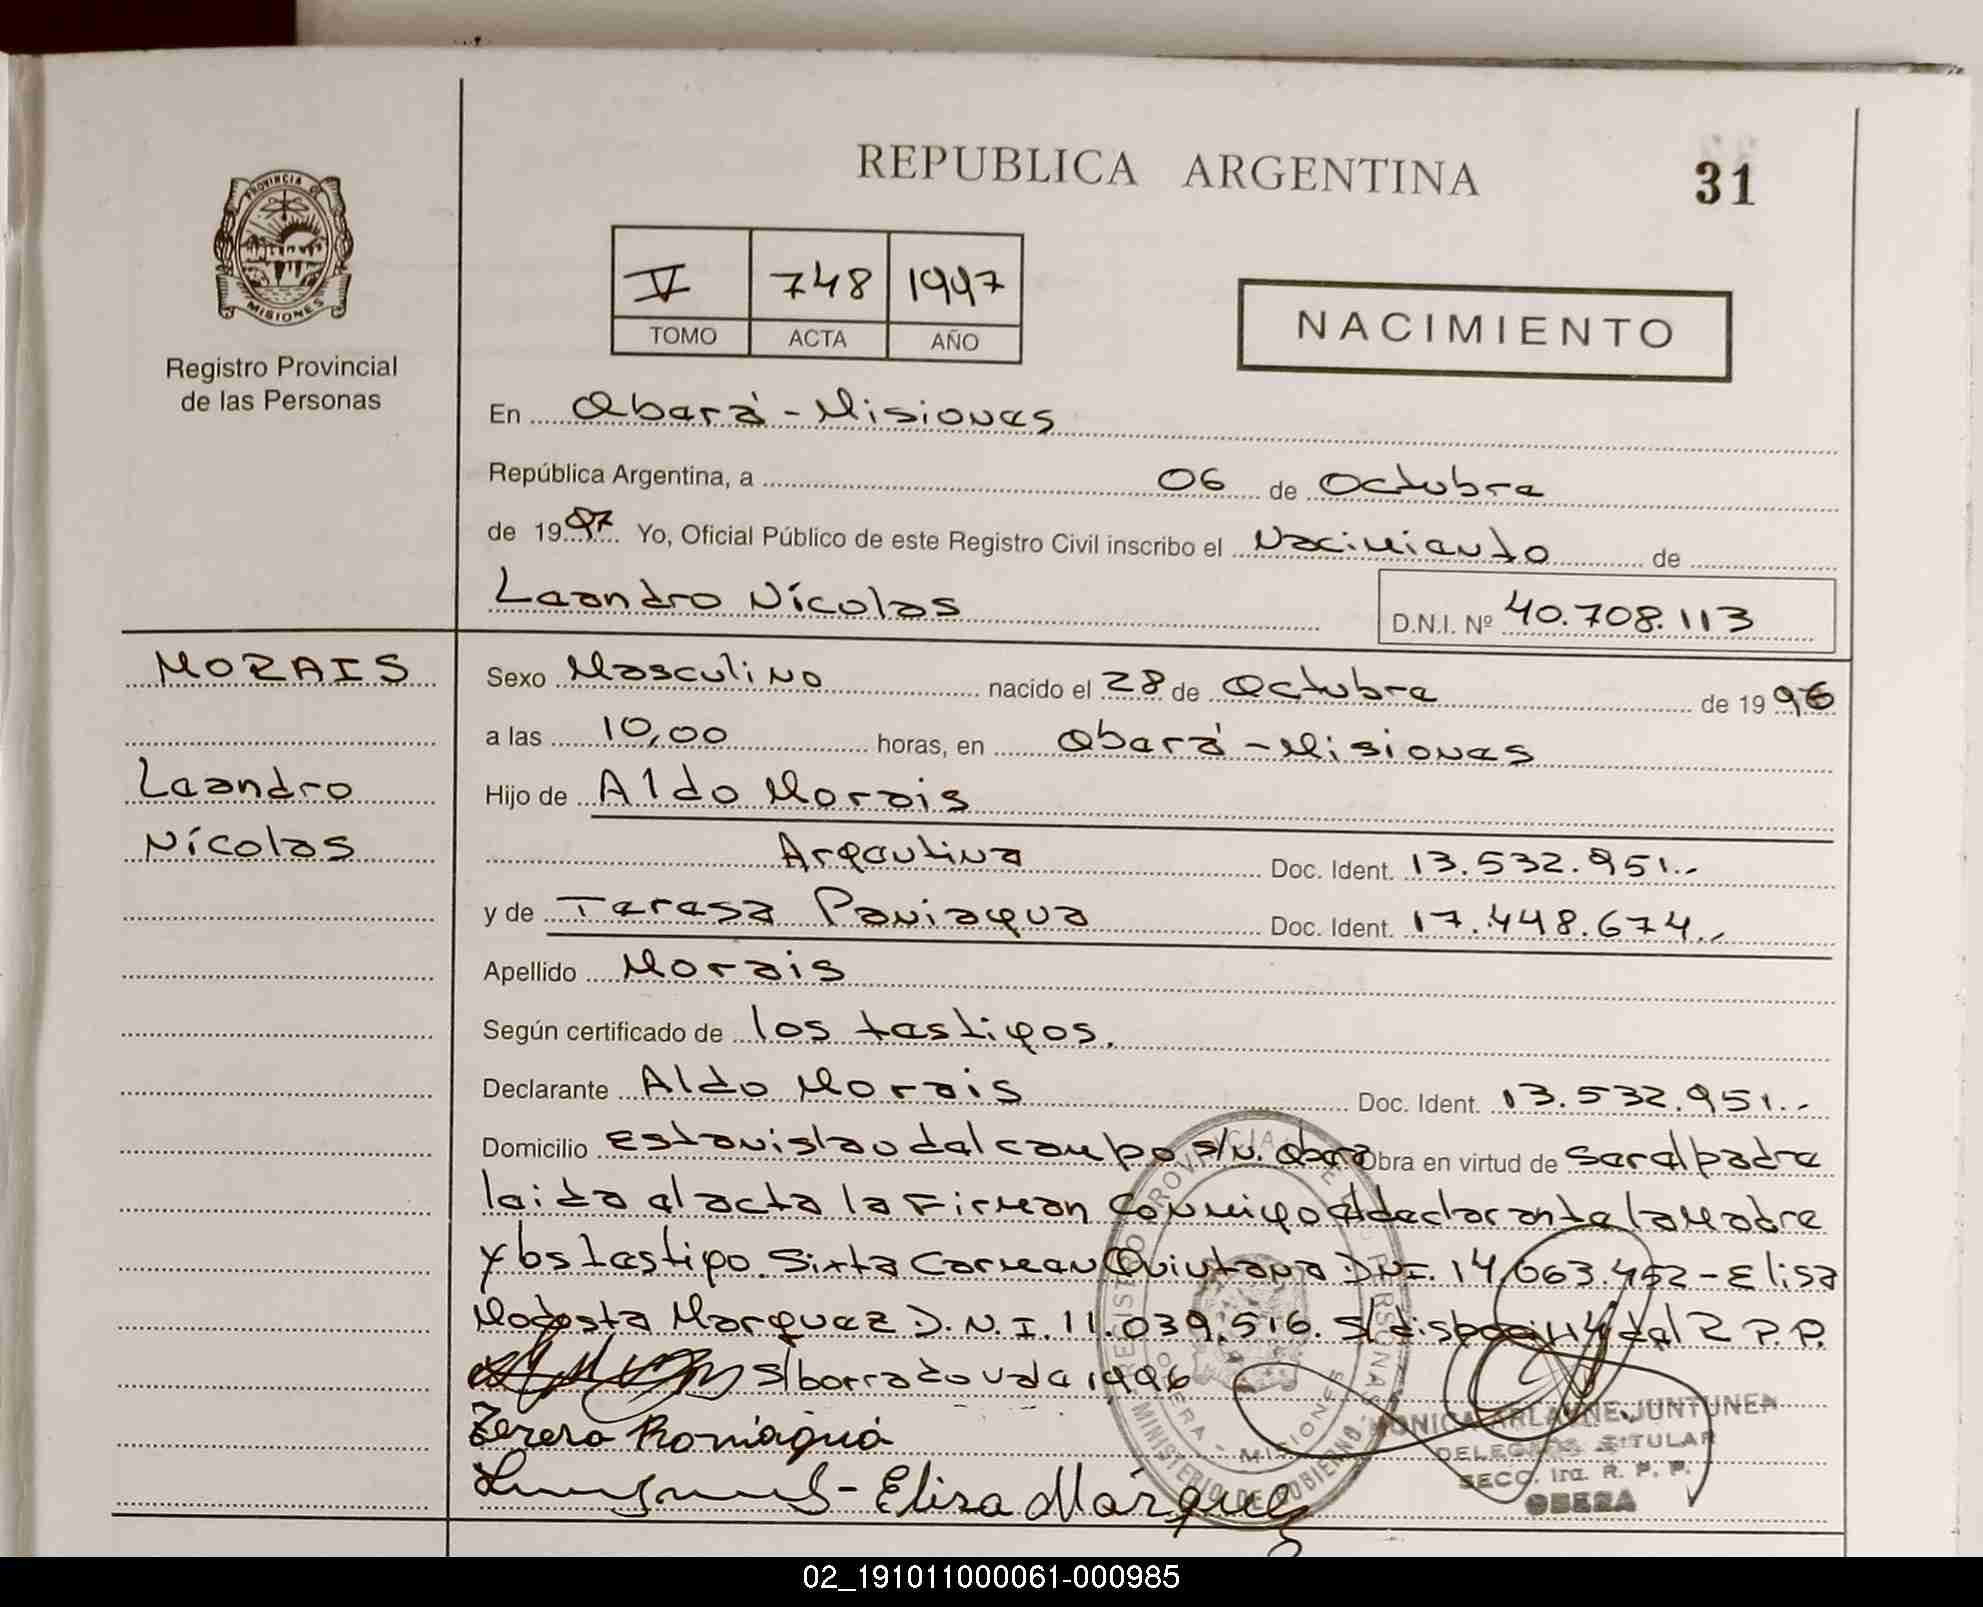 REPUBLICA ARGENTINA
31
PROVINCIA D
MISIONES
Registro Provincial
de las Personas
V 748 1997
TOMO ACTA AÑO
NACIMIENTO
En Oberá - Misiones
República Argentina, a 06 de Octubre
de 1997 Yo, Oficial Público de este Registro Civil inscribo el Nacimiento de
Leandro Nícolas D.N.I. Nº 40.708.113
MORAIS
Leandro
Nícolas
Sexo Masculino nacido el 28 de Octubre de 1996
a las 10,00 horas, en Oberá - Misiones
Hijo de Aldo Morais
Argentina Doc. Ident. 13.532.951.-
y de Teresa Paniagua Doc. Ident. 17.448.674.-
Apellido Morais
Según certificado de los testigos.
Declarante Aldo Morais Doc. Ident. 13.532.951.-
Domicilio Estanislao del campo s/N. Oberá Obra en virtud de ser el padre
leida el acta la Firman Conmigo el declarante la Madre
y los testigo. Sixta Carmen Quintana DNI. 14.663.452 - Elisa
Modesta Marquez D.N.I. 11.039.516. S/ del R.P.P.
S/borrado vale 1996
Teresa Paniagua
- Elisa Márquez
REGISTRO PROVINCIAL DE LAS PERSONAS
MINISTERIO DE GOBIERNO
OBERA - MISIONES
MONICA ARLAYNE JUNTUNEN
DELEGADA TITULAR
SECC. 1ra. R. P. P.
OBERA
02_191011000061-000985